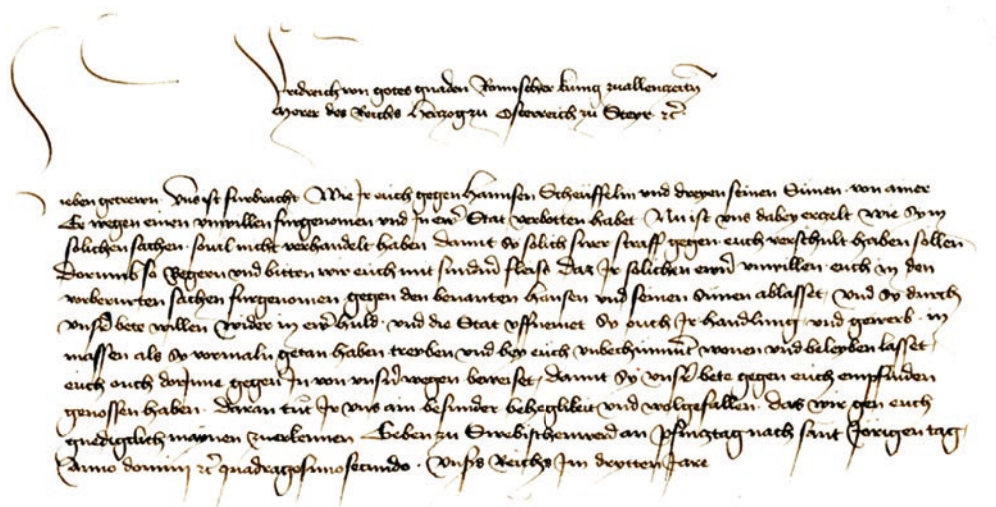 Fridreich von gotes gnaden Romischer kunig zuallenczeitn
Merer des Reichs Herczog zu Osterreich zu Steyr ꝛc̄
Lieben getrewn Vns ist furbracht Wie Ir euch gegen Hannsen Scheuffelin vnd dreyen seinen Sünen von ainer
Ee wegen einen vnwillen furgenomen vnd In ewr̄ Stat verbotten habet Nu ist vns dabey erczelt wie Sy in
solichen sachen souil nicht verhandelt haben damit sy solich swer straff gegen euch verschult haben sollen
Dorumb so Begern vnd bitten wir euch mit sundr̄m fleiss daz Ir solichen ewrn̄ vnwillen euch in den
vorberurten sachen furgenomen gegen den benanten Hansen vnd seinen Sünen ablasset vnd Sy durch
vnsr̄ bete willen wider in ewr̄ huld vnd die Stat vffnemet Sy ouch Ir handlung vnd gewerb in
massen als Sy vormaln getan haben treyben vnd bey euch vnbechummert wonen vnd beleyben lasset
euch ouch dorInne gegen In von vnsrn̄ wegen beweiset damit Sy vnsr̄ bete gegen euch empfinden
genossen haben daran tut Ir vns ain besunder beheglikeit vnd wolgefallen das wir gen euch
gnediglich maynen zuerkennen Geben zu Swebischenwerd an Pfincztag nach sant Jorigen tag
Anno domini ꝛc̄ quadragesimosecundo Vnsrs Reichs Im drytten Jare